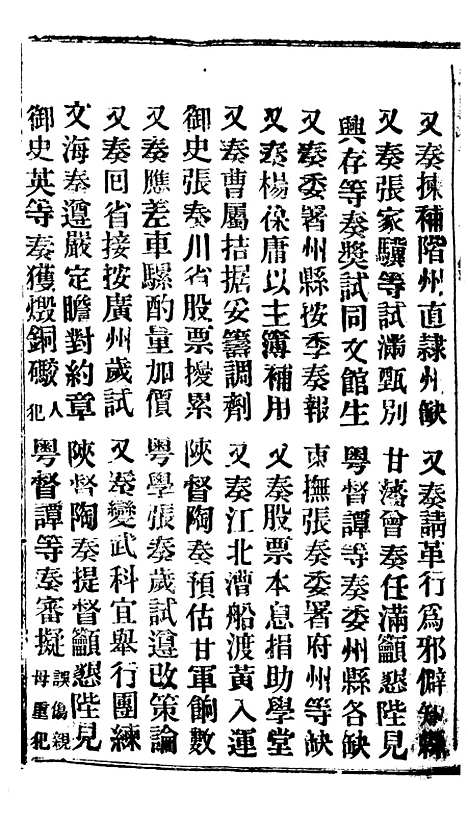 又奏揀補階州直隸州缺
又奏請革行爲邪僻知縣
又奏張家驤等試滿甄別
甘藩曾奏任滿籲懇陛見
興存等奏奬試同文館生
粵督譚等奏委州縣各缺
又奏委署州縣按季奏報
東撫張奏委署府州等缺
又奏楊葆庸以主簿補用
又奏股票本息捐助學堂
又奏曹屬拮据妥籌調劑
又奏江北漕船渡黃入運
御史張奏川省股票擾累
陝督陶奏預估甘軍餉數
又奏應差車騾酌量加價
粵學張奏歲試遵改策論
又奏回省接按廣州歲試
又奏變武科宜舉行團練
文海奏遵嚴定瞻對約章
陝督陶奏提督籲懇陛見
御史英等奏獲燬銅礮人犯
粵督譚等奏審擬誤傷親母重犯